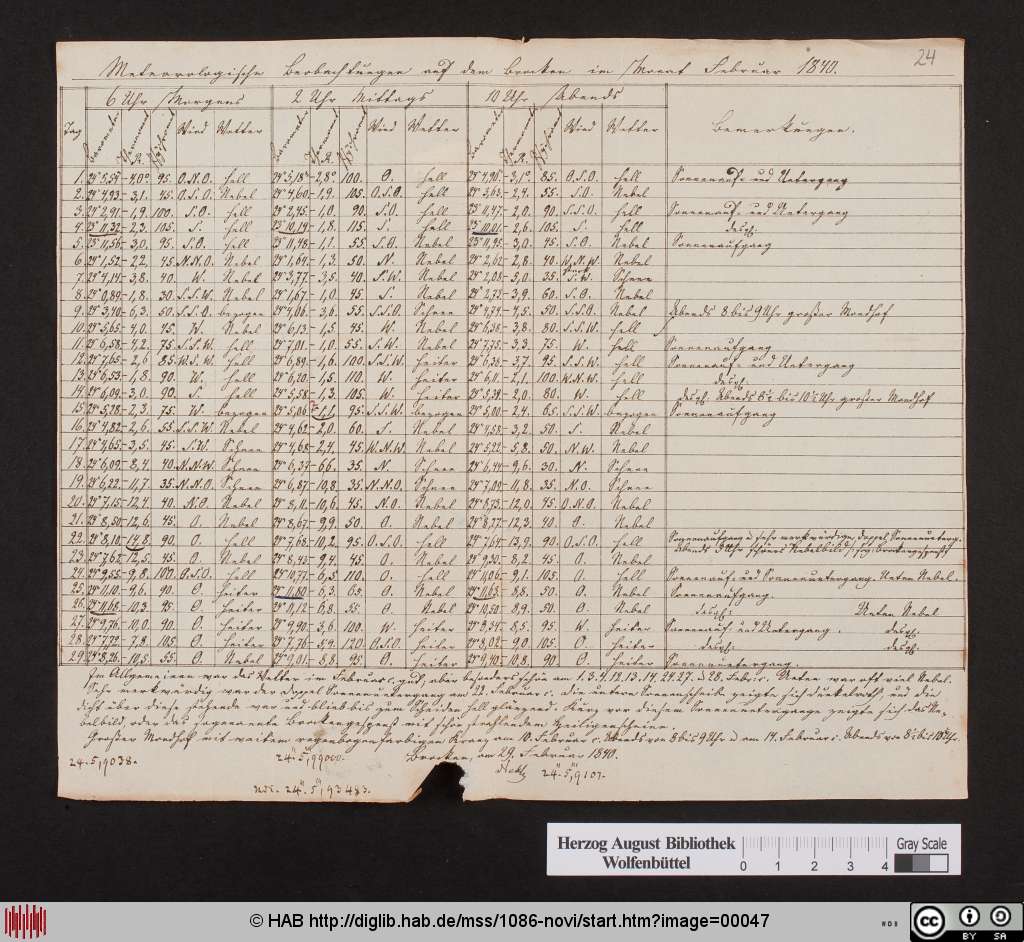 24
Meteorologische Beobachtungen auf dem Brocken im Monat Februar 1840.
6 Uhr Morgens 2 Uhr Mittags 10 Uhr Abends
Tag Wind Wetter Wind Wetter Wind Wetter Bemerkungen.
R. R. R.
1. 24" 5,59 - 4,0° 95. O.N.O. hell 24" 5,18 - 2,8° 100. O. hell 24" 4,90 - 3,1° 85. O.S.O. hell Sonnenauf- und Untergang
2. 24" 4,93 - 3,1. 45. O.S.O. Nebel 24" 4,60 - 1,9. 105. O.S.O. hell 24" 3,63 - 2,4. 55. S.O. Nebel
3. 24" 2,91 - 1,9. 100. S.O. hell 24" 2,45 - 1,0. 90. S.O. hell 23" 11,47 - 2,0. 90. S.S.O. hell Sonnenauf- und Untergang
4. 23" 11,32 - 2,3. 105. S. hell 23" 10,19 - 1,8. 115. S. hell 23" 10,01 - 2,6. 105. S. hell desgl.
5. 23" 11,56 - 3,0. 95. S.O. hell 23" 11,48 - 1,1. 55. S.O. Nebel 23" 11,95 - 3,0. 45. S.O. Nebel Sonnenaufgang
6. 24" 1,52 - 2,2. 45. N.N.O. Nebel 24" 1,64 - 1,3. 50. N. Nebel 24" 2,62 - 2,8. 40. W.N.W. Nebel
7. 24" 4,14 - 3,8. 40. W. Nebel 24" 3,77 - 3,5. 40. S.W. Nebel 24" 2,08 - 5,0. 35. S.W. Schnee
8. 24" 0,89 - 1,8. 30. S.S.W. Nebel 24" 1,67 - 1,0. 45. S. Nebel 24" 2,73 - 3,9. 60. S.O. Nebel
9. 24" 3,40 - 6,3. 50. S.S.O. bezogen 24" 4,06 - 3,6. 55. S.S.O. Schnee 24" 4,74 - 4,5. 50. S.S.O. Nebel Abends 8 bis 9 Uhr großer Mondhof
10. 24" 5,65 - 4,0. 45. W. Nebel 24" 6,13 - 1,5. 45. W. Nebel 24" 6,36 - 3,8. 80. S.S.W. hell
11. 24" 6,58 - 4,2. 75. S.S.W. hell 24" 7,01 - 1,0. 55. S.W. Nebel 24" 7,75 - 3,3. 75. W. hell Sonnenaufgang
12. 24" 7,65 - 2,6. 85. W.S.W. hell 24" 6,89 - 1,6. 100. S.S.W. heiter 24" 6,36 - 3,7. 95. S.S.W. hell Sonnenauf- und Untergang
13. 24" 6,53 - 1,8. 90. W. hell 24" 6,20 - 1,5. 110. W. heiter 24" 6,11 - 2,1. 100. W.N.W. hell desgl.
14. 24" 6,09 - 3,0. 90. S. hell 24" 5,58 - 1,3. 105. W. heiter 24" 5,39 - 2,0. 80. W. hell desgl. Abends 8½ bis 10½ Uhr großer Mondhof
15. 24" 5,28 - 2,3. 75. W. bezogen 24" 5,06 - 1,1. 95. S.S.W. bezogen 24" 5,00 - 2,4. 65. S.S.W. bezogen Sonnenaufgang
16. 24" 4,82 - 2,6. 55. S.S.W. Nebel 24" 4,62 - 2,0. 60. S. Nebel 24" 4,58 - 3,2. 50. S. Nebel
17. 24" 4,65 - 3,5. 45. S.W. Schnee 24" 4,68 - 2,4. 45. W.N.W. Nebel 24" 5,22 - 5,8. 50. N.W. Nebel
18. 24" 6,09 - 8,4. 40. N.N.W. Schnee 24" 6,37 - 6,6. 35. N. Schnee 24" 6,44 - 9,6. 30. N. Schnee
19. 24" 6,22 - 11,7. 35. N.N.O. Schnee 24" 6,87 - 10,8. 35. N.N.O. Schnee 24" 7,00 - 11,8. 35. N.O. Schnee
20. 24" 7,15 - 12,4. 40. N.O. Nebel 24" 8,11 - 10,6. 45. N.O. Nebel 24" 8,73 - 12,0. 45. O.N.O. Nebel
21. 24" 8,50 - 12,6. 45. O. Nebel 24" 8,67 - 9,9. 50. O. Nebel 24" 8,77 - 12,3. 40. O. Nebel
22. 24" 8,10 - 14,8. 90. O. hell 24" 7,68 - 10,2. 95. O.S.O. hell 24" 7,64 - 13,9. 90. O.S.O. hell Sonnenaufgang u. sehr merkwürdiger doppel Sonnenunterg.
Abends 5 Uhr schönes Nebelbild, sog. Brockengespenst
23. 24" 7,62 - 12,5. 45. O. Nebel 24" 8,43 - 9,4. 45. O. Nebel 24" 9,30 - 8,2. 45. O. Nebel
24. 24" 9,55 - 9,8. 100. O.S.O. hell 24" 10,77 - 6,5. 110. O. hell 24" 11,06 - 9,1. 105. O. hell Sonnenauf- und Sonnenuntergang. Unten Nebel.
25. 24" 11,10 - 9,6. 90. O. heiter 24" 11,80 - 6,3. 65. O. Nebel 24" 11,63 - 8,8. 50. O. Nebel Sonnenaufgang.
26. 24" 11,68 - 10,3. 95. O. heiter 24" 11,12 - 6,8. 55. O. Nebel 24" 10,50 - 8,9. 50. O. Nebel desgl. Unten Nebel
27. 24" 9,76 - 10,0. 90. O. heiter 24" 9,90 - 3,6. 100. W. heiter 24" 8,34 - 8,5. 95. W. heiter Sonnenauf- und Untergang. desgl.
28. 24" 7,72 - 7,8. 105. O. heiter 24" 7,76 - 5,9. 120. O.S.O. heiter 24" 8,02 - 9,0. 105. O. heiter desgl. desgl.
29. 24" 8,26 - 10,5. 55. O. Nebel 24" 9,01 - 8,8. 95. O. heiter 24" 9,40 - 10,8. 90. O. heiter Sonnenuntergang.
Im Allgemeinen war das Wetter im Februar c. gut, aber besonders schön am 1. 3. 4. 12. 13. 14. 24. 27. u. 28. Febr. c. Unten war oft viel Nebel.
Sehr merkwürdig war der doppel Sonnenuntergang am 22. Februar c. die untere Sonnenscheibe zeigte sich dunkelroth, und die
dicht über diese stehende war und blieb bis zum Scheiden hell glänzend. Kurz vor diesem Sonnenuntergange zeigte sich das Ne-
belbild, oder das sogenannte Brockengespenst mit schön strahlendem Heiligenscheine.
Großer Mondhof mit weitem regenbogenfarbigen Kranz am 10. Februar c. Abends von 8 bis 9 Uhr u. am 14. Februar c. Abends von 8½ bis 10½ Uhr.
Brocken, am 29. Februar 1840.
24. 5,9038. 24." 5,99000. 24." 5,9107.
24." 5,93483.
Herzog August Bibliothek
Wolfenbüttel
0 1 2 3 4
Gray Scale
© HAB http://diglib.hab.de/mss/1086-novi/start.htm?image=00047
WDB
cc BY SA